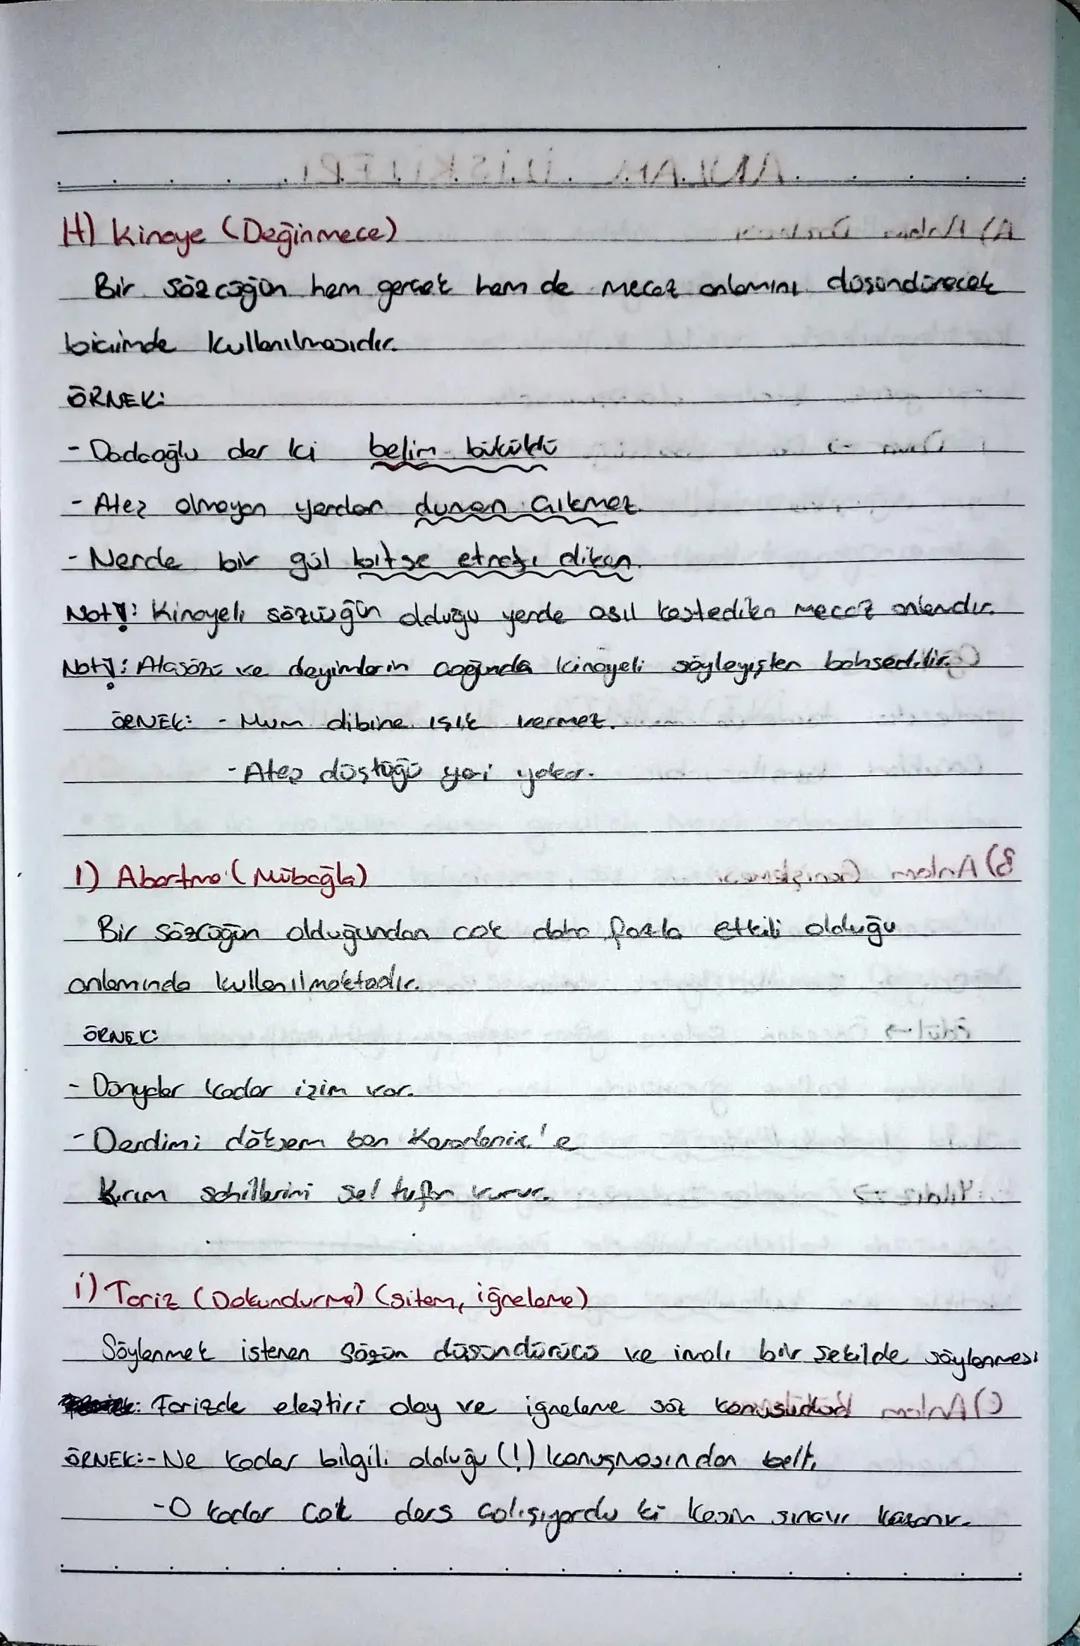 H) Kinaye (Değinmece)
Bir sözcüğün hem gerçek hem de mecaz anlamını düşündürecek
biçimde kullanılmasıdır.
ÖRNEK:
- Dadaoğlu der ki belim büküldü
- Ateş olmayan yerden duman çıkmaz.
- Nerde bir gül bitse etrafı diken.
Not: Kinayeli sözcüğün olduğu yerde asıl kastedilen mecaz anlamdır.
Not: Atasözü ve deyimlerin çoğunda kinayeli söyleyişten bahsedilir.
ÖRNEK: - Mum dibine ışık vermez.
- Ateş düştüğü yeri yakar.
I) Abartma (Mübağla)
Bir sözcüğün olduğundan çok daha fazla etkili olduğu
anlamında kullanılmaktadır.
ÖRNEK:
- Dünyalar kadar izim var.
- Derdimi döksem ben Karadeniz'e
Kırım sahillerini sel tufan vurur.
i) Tariz (Dokundurma) (sitem, iğneleme)
Söylenmek istenen sözün düşündürücü ve imalı bir şekilde söylenmesi
Tarizde eleştiri alay ve iğneleme söz konusudur
ÖRNEK:- Ne kadar bilgili olduğu (!) konuşmasından belli,
- O kadar çok ders çalışıyordu ki kesin sınavı kazanır.